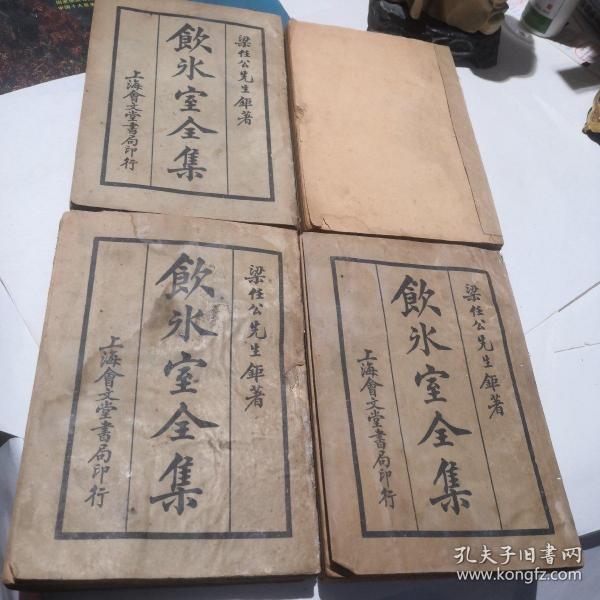 梁任公先生鉅著
飲氷室全集
上海會文堂書局印行
梁任公先生鉅著
飲氷室全集
上海會文堂書局印行
梁任公先生鉅著
飲氷室全集
上海會文堂書局印行
孔夫子旧书网
www.kongfz.com